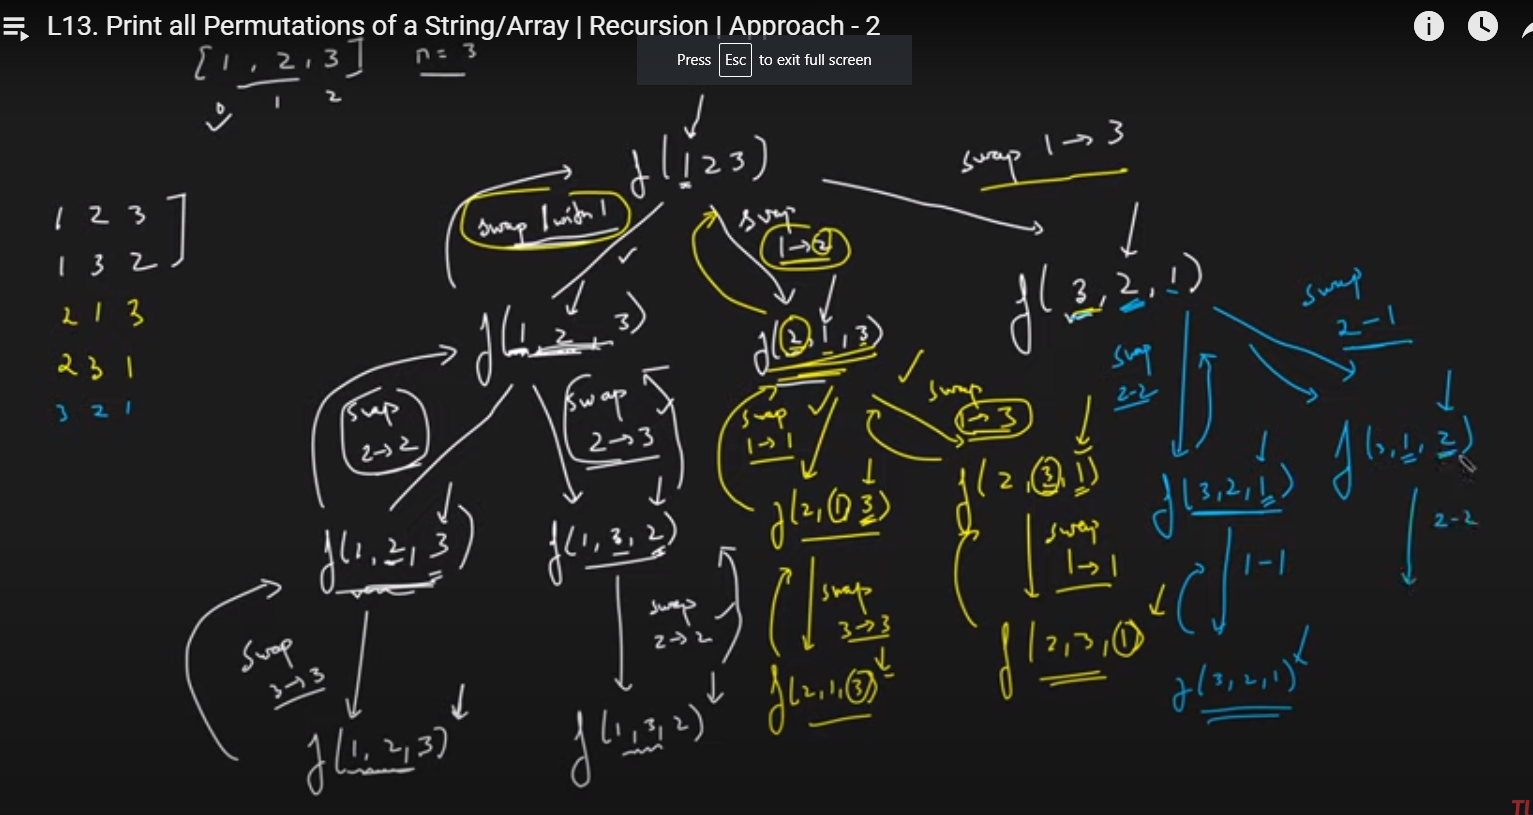 L13. Print all Permutations of a String/Array | Recursion | Approach - 2
Press Esc to exit full screen
[1, 2, 3] n = 3
0 1 2
swap 1 → 3
f(1 2 3)
1 2 3]
1 3 2
2 1 3
2 3 1
3 2 1
swap 1 with 1
swap
1→2
f(1, 2, 3)
f(2, 1, 3)
f(3, 2, 1)
swap
2-1
swap
2→2
swap
2→3
swap
1→1
swap
1→3
swap
2-2
f(1, 2, 3)
f(1, 3, 2)
f(2, 1 3)
f(2, 3, 1)
f(3, 2, 1)
f(3, 1, 2)
swap
3→3
swap
2→2
swap
3→3
swap
1→1
1-1
2-2
f(1, 2, 3)
f(1, 3, 2)
f(2, 1, 3)
f(2, 3, 1)
f(3, 2, 1)